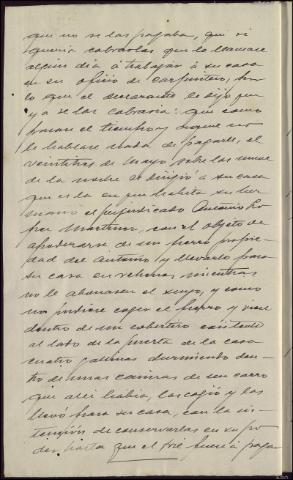 que no se las pagaba, que si
queria cobrarlas que lo llamase
algun dia á trabajar á su casa
en su oficio de carpintero, con
lo que el declarante le dijo que
ya se las cobraria: que como
pasara el tiempo y no
le hablase nada de pagarle, el
veintitres de Mayo sobre las nueve
de la noche se dirigió á su casa
que es la en que habita su her
mano el perjudicado Antonio Lo
pez Martinez, con el objeto de
apoderarse de un perro propie
dad del Antonio y llevarlo para
su casa en rehenes, mientras
no le abonasen el suyo, y como
no pudiese coger el perro y viese
dentro de un cobertizo existente
al lado de la puerta de la casa
cuatro gallinas durmiendo den
tro de unas camas de un carro
que alli habia, las cogió y las
llevó para su casa, con la in
tención de conservarlas en su po
der hasta que el fuese á pagar